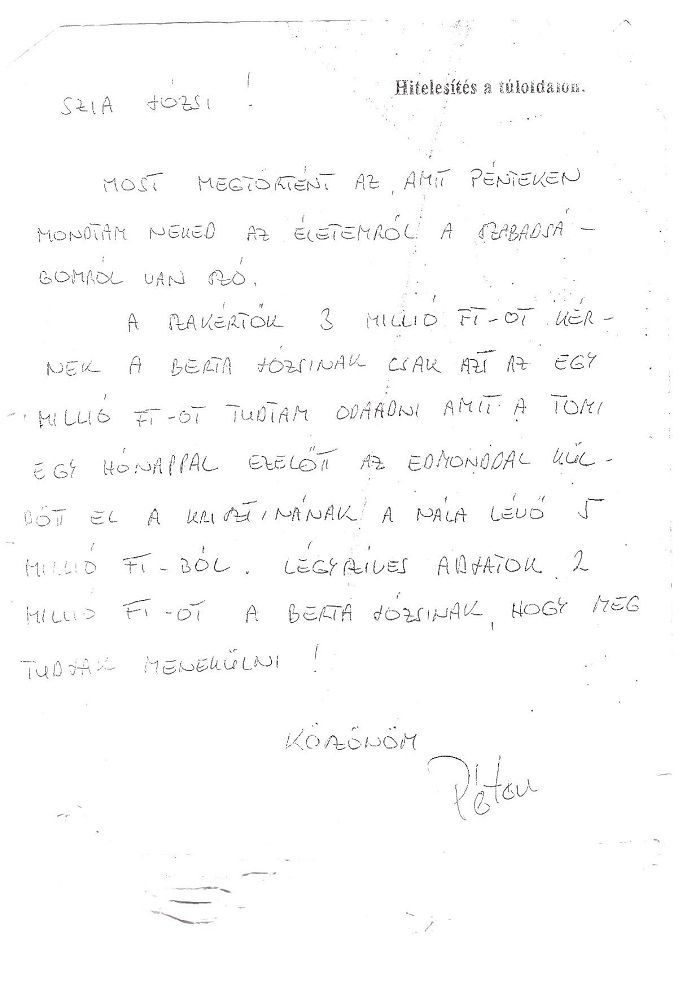 Hitelesítés a túloldalon.
SZIA JÓZSI !
MOST MEGTÖRTÉNT AZ, AMIT PÉNTEKEN
MONDTAM NEKED AZ ÉLETEMRŐL A SZABADSÁ -
GOMRÓL VAN SZÓ.
A SZAKÉRTŐK 3 MILLIÓ FT-OT KÉR-
NEK A BERTA JÓZSINAK CSAK AZT AZ EGY
MILLIÓ FT-OT TUDTAM ODAADNI AMIT A TOMI
EGY HÓNAPPAL EZELŐTT AZ EDMONDDAL KÜL-
DÖTT EL A KRISZTINÁNAK A NÁLA LÉVŐ 5
MILLIÓ FT-BÓL. LÉGYSZÍVES ADJATOK 2
MILLIÓ FT-OT A BERTA JÓZSINAK, HOGY MEG
TUDJAK MENEKÜLNI !
KÖSZÖNÖM
Péter